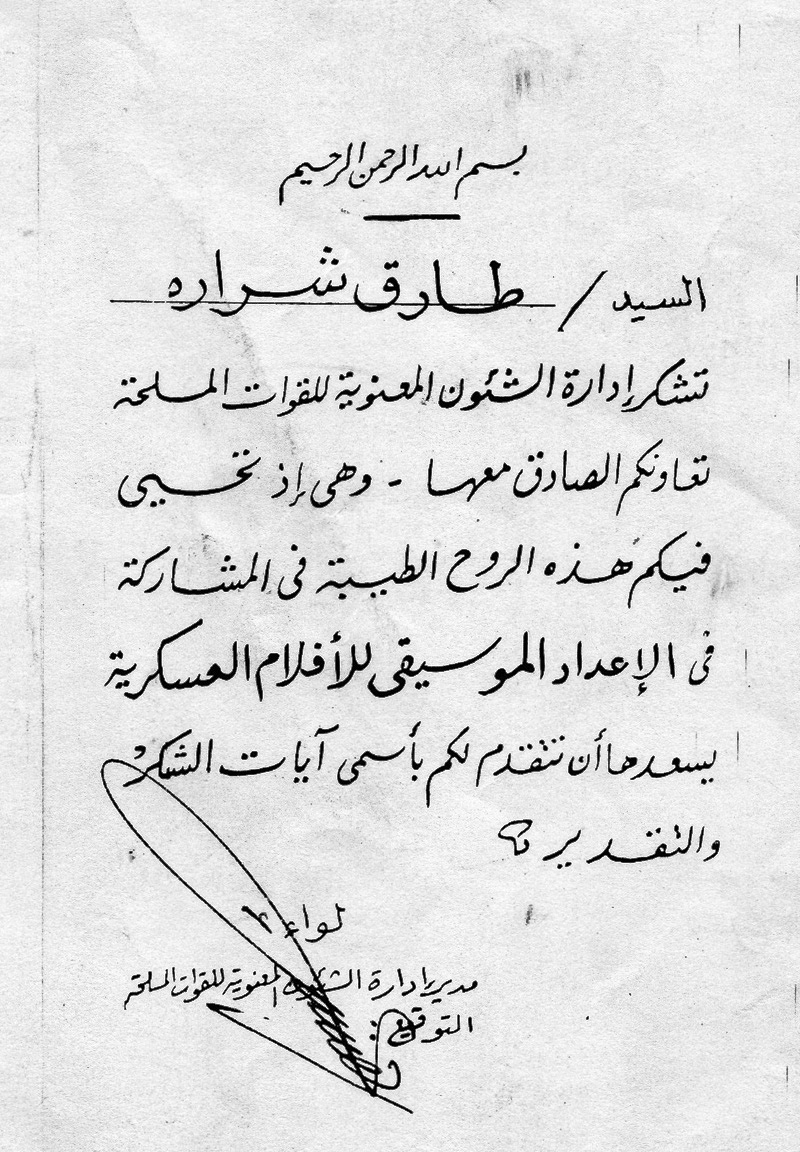 بسم الله الرحمن الرحيم
السيد / طارق شراره
تتشكر إدارة الشئون المعنوية للقوات المسلحة
تعاونكم الصادق معها - وهى إذ تحيى
فيكم هذه الروح الطيبة فى المشاركة
فى الإعداد الموسيقى للأفلام العسكرية
يسعدها أن تتقدم لكم بأسمى آيات الشكر
والتقدير
لواء
مدير إدارة الشئون المعنوية للقوات المسلحة
التوقيع :